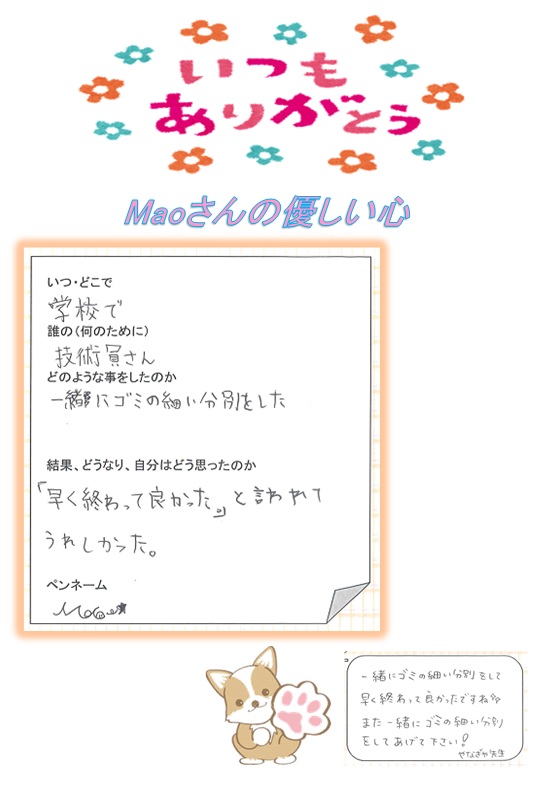 いつも
ありがとう
Maoさんの優しい心
いつ・どこで
学校で
誰の(何のために)
技術員さん
どのような事をしたのか
一緒にゴミの細い分別をした
結果、どうなり、自分はどう思ったのか
「早く終わって良かった。」と言われて
うれしかった。
ペンネーム
Mao
一緒にゴミの細い分別をして
早く終わって良かったですね
また一緒にゴミの細い分別
をしてあげて下さい!
やなぎや先生